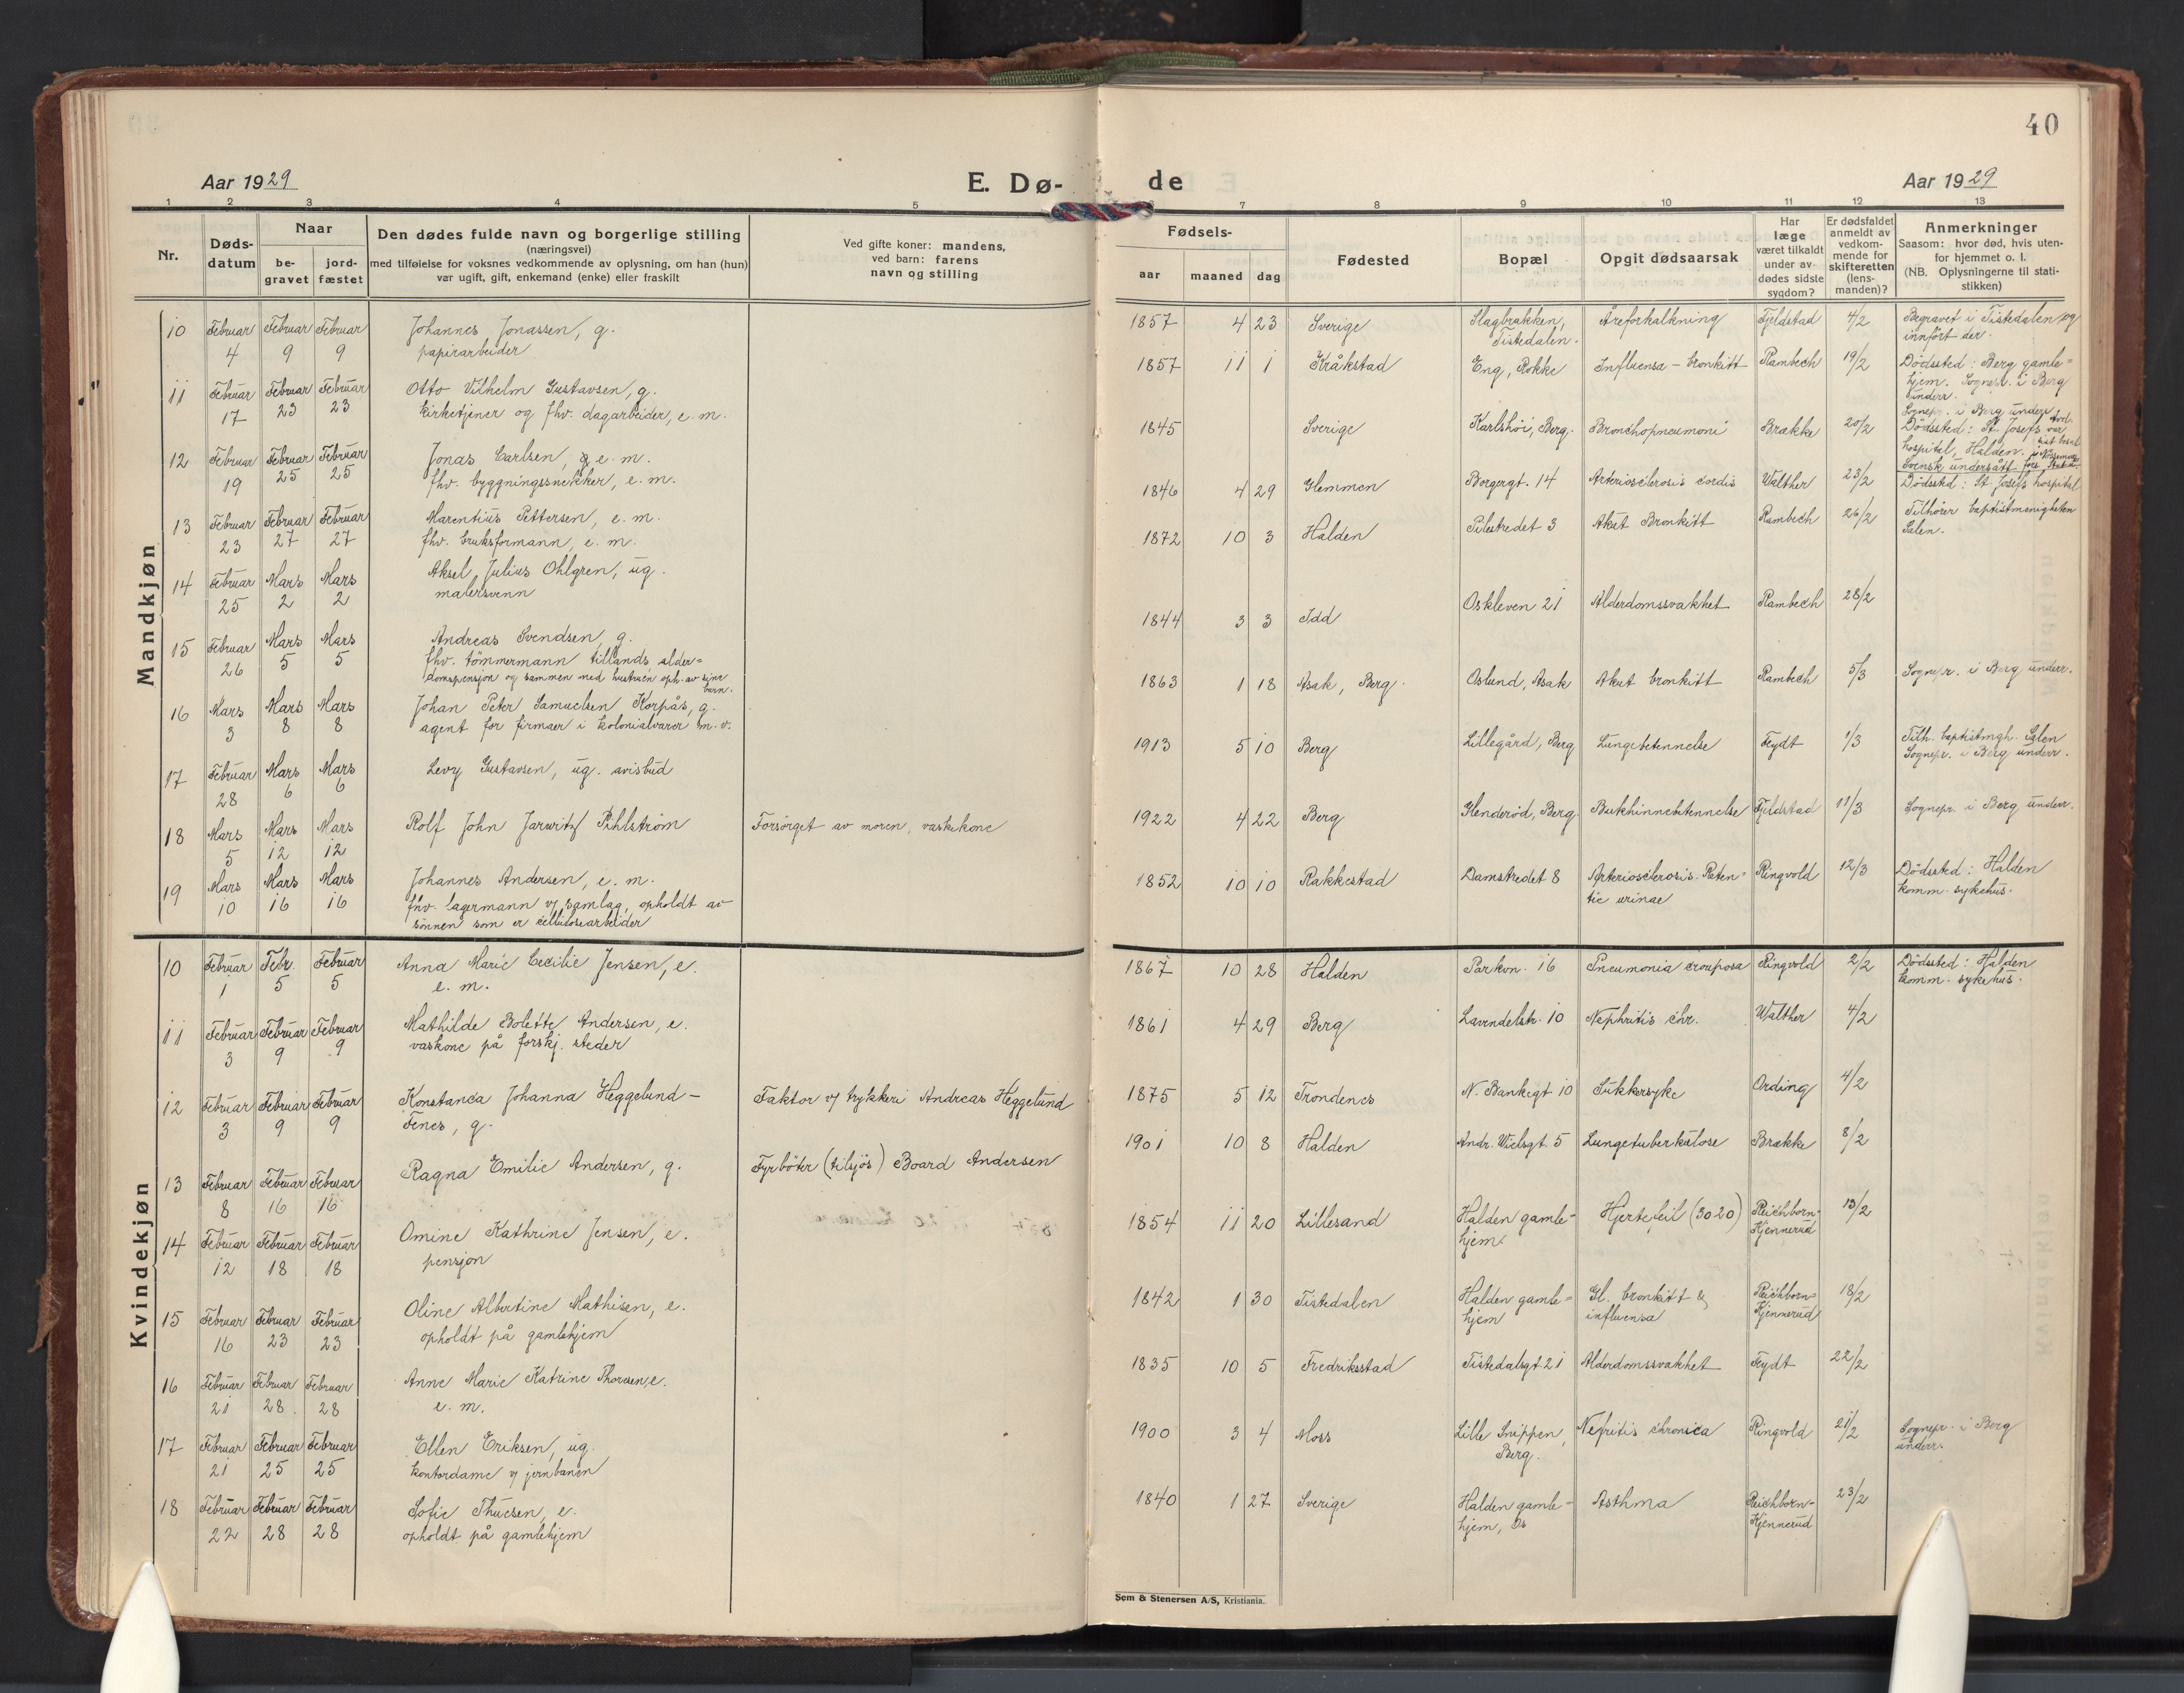 40
Aar 1929
E. Dø-
de
Aar 1929
1 2 3 4 5
6 7 8 9 10 11 12 13
Nr.
Døds-
datum
Naar
be-
gravet
jord-
fæstet
Den dødes fulde navn og borgerlige stilling
(næringsvei)
med tilføielse for voksnes vedkommende av oplysning, om han (hun)
var ugift, gift, enkemand (enke) eller fraskilt
Ved gifte koner: mandens,
ved barn: farens
navn og stilling
Fødsels-
aar maaned dag
Fødested
Bopæl
Opgit dødsaarsak
Har
læge
været tilkaldt
under av-
dødes sidste
sygdom?
Er dødsfaldet
anmeldt av
vedkom-
mende for
skifteretten
(lens-
manden)?
Anmerkninger
Saasom: hvor død, hvis uten-
for hjemmet o. l.
(NB. Oplysningerne til stati-
stikken)
Mandkjøn
10 Februar 4 Februar 9 Februar 9 Johannes Jonassen, g.
papirarbeider
11 Februar 17 Februar 23 Februar 23 Otto Vilhelm Gustavsen, g.
kirketjener og fhv. dagarbeider, e. m.
12 Februar 19 Februar 25 Februar 25 Jonas Carlsen, e. m.
fhv. byggningssnekker, e. m.
13 Februar 23 Februar 27 Februar 27 Marentius Pettersen, e. m.
fhv. bruksformann, e. m.
14 Februar 25 Mars 2 Mars 2 Aksel Julius Ohlgren, ug.
malersvenn
15 Februar 26 Mars 5 Mars 5 Andreas Svendsen, g.
fhv. tömmermann tillands, alder=
domspensjon og sammen med hustruen oph. av sine
barn.
16 Mars 3 Mars 8 Mars 8 Johan Peter Samuelsen Korpås, g.
agent for firmaer i kolonialvarer m. v.
17 Februar 28 Mars 6 Mars 6 Levy Gustavsen, ug. avisbud
18 Mars 5 Mars 12 Mars 12 Rolf John Jarwitz Pihlström Forsörget av moren, vaskekone
19 Mars 10 Mars 16 Mars 16 Johannes Andersen, e. m.
fhv. lagermann v/ samlag, opholdt av
sönnen som er cellulosearbeider
Kvindekjøn
10 Februar 1 Febr. 5 Februar 5 Anna Marie Cecilie Jensen, e.
e. m.
11 Februar 3 Februar 9 Februar 9 Mathilde Bolette Andersen, e.
vaskone på forskj. steder
12 Februar 3 Februar 9 Februar 9 Konstance Johanna Heggelund-
Fenes, g. Faktor v/ trykkeri Andreas Heggelund
13 Februar 8 Februar 16 Februar 16 Ragna Emilie Andersen, g. Fyrböter (tilsjös) Board Andersen
14 Februar 12 Februar 18 Februar 18 Omine Kathrine Jensen, e.
pensjon
15 Februar 16 Februar 23 Februar 23 Oline Albertine Mathisen, e.
opholdt på gamlehjem
16 Februar 21 Februar 28 Februar 28 Anne Marie Katrine Thoresen, e.
e. m.
17 Februar 21 Februar 25 Februar 25 Ellen Eriksen, ug.
kontordame v/ jernbanen
18 Februar 22 Februar 28 Februar 28 Sofie Thuesen, e.
opholdt på gamlehjem
1857 4 23 Sverige Slagbrakken,
Tistedalen. Åreforkalkning Fjeldstad 4/2 Begravet i Tistedalen og
innfört der.
1857 11 1 Kråkstad Eng, Rokke Influensa - bronkitt Rambech 19/2 Dödssted: Berg gamle=
hjem. Sognepr. i Berg
underr.
1845 Sverige Karlshöi, Berg. Bronchopneumoni Brække 20/2 Sognepr. i Berg underr.
Dödssted: St. Josefs
hospitel, Halden.
Svensk undersått
1846 4 29 Glemmen Borgergt. 14 Arteriosclerosis cordis Walther 23/2 Dödssted: St. Josefs hospitel
1872 10 3 Halden Pilestredet 3 Akut Bronkitt Rambech 26/2 Tilhörer baptistmenigheten
Salen.
1844 3 3 Idd Oskleven 21 Alderdomssvakhet Rambech 28/2
1863 1 18 Asak, Berg. Oslund, Asak Akut bronkitt Rambech 5/3 Sognepr. i Berg underr.
1913 5 10 Berg Lillegård, Berg Lungebetennelse Feydt 1/3 Tilh. baptistmgh. Salen
Sognepr. i Berg underr.
1922 4 22 Berg Glenderöd, Berg Bukhinnebetennelse Fjeldstad 11/3 Sognepr. i Berg underr.
1852 10 10 Rakkestad Damstredet 8 Arteriosclerosis. Reten=
tio urinae Ringvold 12/3 Dödssted: Halden
komm. sykehus.
1867 10 28 Halden Parkvn. 16 Pneumonia crouposa Ringvold 2/2 Dödssted: Halden
komm. sykehus.
1861 4 29 Berg Lavendelstr. 10 Nephritis chr. Walther 4/2
1875 5 12 Trondenes N. Bankegt 10 Sukkersyke Ording 4/2
1901 10 8 Halden Andr. Wielsgt. 5 Lungetuberkulose Brække 8/2
1854 11 20 Lillesand Halden gamle-
hjem Hjertefeil (3020) Reichborn-
Kjennerud 13/2
1842 1 30 Tistedalen Halden gamle=
hjem Gl. bronkitt &
influensa Reichborn=
Kjennerud 18/2
1835 10 5 Fredriksstad Tistedalsgt. 21 Alderdomssvakhet Feydt 22/2
1900 3 4 Moss Lille Snippen,
Berg. Nefritis chronica Ringvold 21/2 Sognepr. i Berg
underr.
1840 1 27 Sverige Halden gamle-
hjem, Os Asthma Reichborn-
Kjennerud 23/2
Sem & Stenersen A/S, Kristiania.